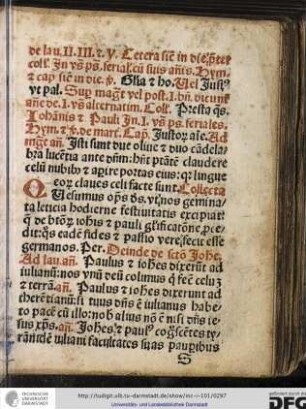 de lau. II. III. ⁊ V. Cetera sic̄ in die. p̄ter
coll'. In vs̄ ps̄. ferial. cū suis añis. Hym.
⁊ cap̄ sic̄ in die. ẜ. Glīa ⁊ ho. Vel Just'
vt pal. Suꝑ maḡt vel post. I. bñ. dicunt̄
añe de. I. vs̄ alternatim. Coll'. Presta q̄s.
Johānis ⁊ Pauli Jn. I. vs̄ ps̄. feriales.
Hym. ⁊ ẜ. de mart'. Cap̄. Justoꝝ aīe. Ad
maḡt añ. Isti sunt due oliue ⁊ duo cādela
bra lucētia ante dñm: hn̄t ptātē claudere
celū nubibꝰ ⁊ aꝑire portas eius: qꝛ lingue
eoꝝ claues celi facte sunt. Collecta
Quesumus op̄s dꝰ. vt nos gemina
ta leticia hodierne festiuitatis excipiat:
q̄ de btōꝝ. iohīs ⁊ pauli gl̄ificatōne ꝓce
dit: qs eadē fides ⁊ passio vere fecit esse
germanos. Per. Deinde de sctō Johē.
Ad lau. añ. Paulus ⁊ iohēs dixerūt ad
iulianū: nos vnū deū colimus q̄ fec̄ celū
⁊ terrā. añ. Paulus ⁊ iohēs dixerunt ad
therētianū: si tuus dñs ē iulianus habe
to pacē cū illo: nob alius nō ē nisi dñs ie-
sus xp̄s. añ. Johēs ⁊ paulꝰ coḡscētes ty
rānidē iuliani facultates suas pauꝑibus
S
http://tudigit.ulb.tu-darmstadt.de/show/inc-i-101/0297
Universitäts- und Landesbibliothek Darmstadt
TECHNISCHE
UNIVERSITÄT
DARMSTADT
DFG